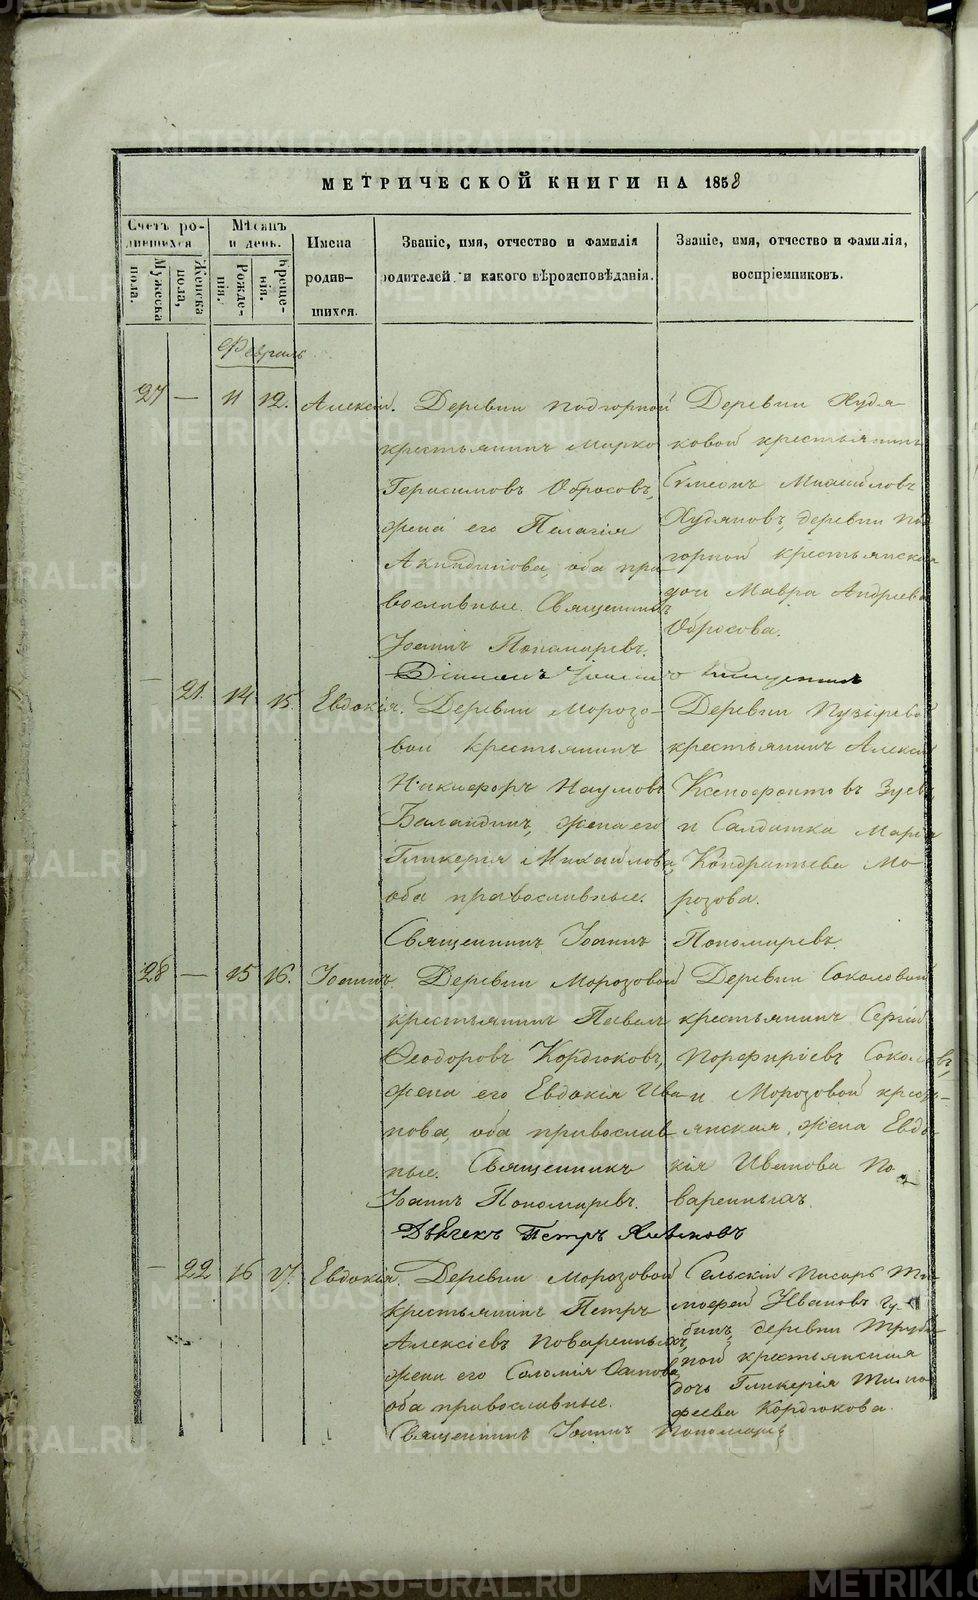 МЕТРИЧЕСКОЙ КНИГИ НА 1858
Счетъ родившихся
Мужеска пола.
Женска пола,
Мѣсяцъ и день.
Рожденія.
Крещенія.
Имена родившихся.
Званіе, имя, отчество и фамилія родителей и какого вѣроисповѣданія.
Званіе, имя, отчество и фамилія, воспріемниковъ.
Февраль
27 — 11 12. Алексій.
Деревни Подгорной
крестьянинъ Марко
Герасимовъ Обросовъ,
жена его Пелагія
Акиндинова, оба пра
вославные. Священникъ
Іоаннъ Пономаревъ.
Деревни Худя
ковой крестьянинъ
Симеонъ Михайловъ
Худяковъ, деревни Под
горной крестьянская
дочь Мавра Андреева
Обросова.
— 21. 14 15. Евдокія.
Деревни Морозо
вой крестьянинъ
Никифоръ Наумовъ
Баландинъ, жена его
Гликерія Михайлова
оба православные.
Священникъ Іоаннъ Пономаревъ
Деревни Пузыревой
крестьянинъ Алексій
Ксенофонтовъ Зуевъ
и Солдатка Марія
Кондратьева Мо
розова.
28 — 15 16. Іоаннъ.
Деревни Морозовой
крестьянинъ Павелъ
Ѳеодоровъ Кордюковъ,
жена его Евдокія Ива
нова, оба православ
ные. Священникъ
Іоаннъ Пономаревъ.
Деревни Соколовой
крестьянинъ Сергій
Порфиріевъ Соколовъ,
и Морозовой кресть-
янская жена Евдо
кія Иванова По
варенныхъ.
Дьячекъ Петръ
— 22 16 17. Евдокія.
Деревни Морозовой
крестьянинъ Петръ
Алексіевъ Поваренныхъ,
жена его Соломія Осипова,
оба православные.
Священникъ Іоаннъ Пономаре
Сельскій писарь Ти
моѳей Ивановъ Гу
бинъ, деревни Труб
ной крестьянская
дочь Гликерія Тимо
феева Кордюкова.
METRIKI.GASO-URAL.RU